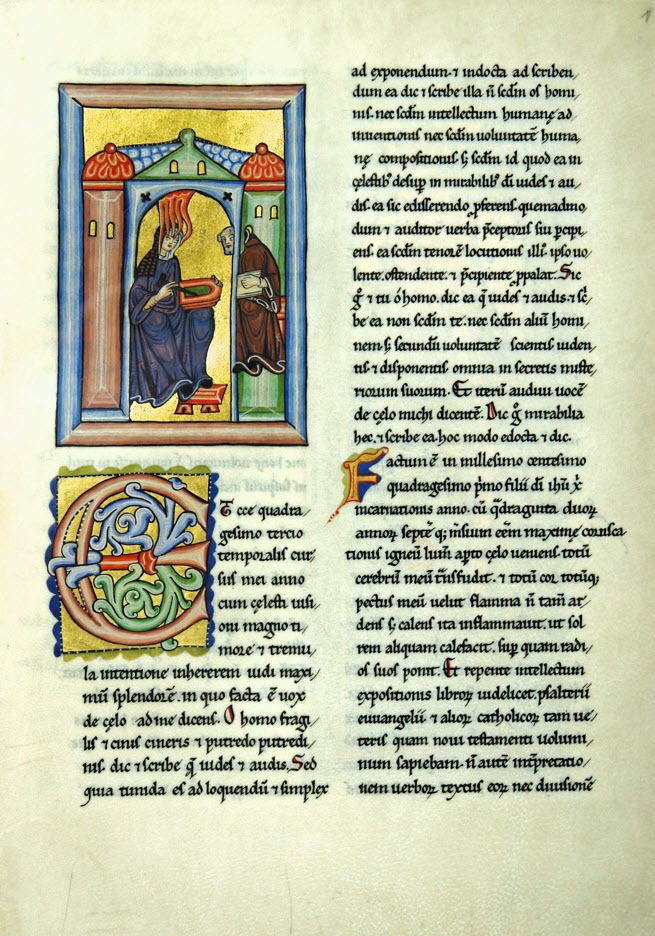 ET ecce quadra/
gesimo tercio
temporalis cur/
sus mei anno
cum cęlesti uisi/
oni magno ti/
more ⁊ tremu/
la intentione inhererem uidi maxi/
mū splendorē. in quo facta ē uox
de cęlo ad me dicens. O homo fragi/
lis ⁊ cinis cineris ⁊ putredo putredi/
nis. dic ⁊ scribe q̄ uides ⁊ audis. Sed
quia timida es ad loquendū ⁊ simplex
ad exponendum. ⁊ indocta ad scriben/
dum ea dic ⁊ scribe illa n̄ scd̄m os homi/
nis. nec scd̄m intellectum humanę ad/
inuentionis nec scd̄m uoluntatē huma/
nę compositionis s; scd̄m id quod ea in
cęlestib' desup̱ in mirabilib' dī uides ⁊ au/
dis. ea sic edisserendo p̱ferens. quemadmo/
dum ⁊ auditor uerba p̱ceptoris sui p̱cipi/
ens. ea scd̄m tenorē locutionis illi'. ipso uo/
lente. ostendente. ⁊ p̱cipiente p̱palat. Sic
g̊ ⁊ tu ó homo. dic ea q̄ uides ⁊ audis. ⁊ sc̄/
be ea non scd̄m te. nec scd̄m aliū homi/
nem s; secundū uoluntatē scientis uiden/
tis ⁊ disponentis omnia in secretis miste/
riorum suorum. Et iterū audiui uocē
de cęlo michi dicentē. Dic g̊ mirabilia
hec. ⁊ scribe ea. hoc modo edocta ⁊ dic.
Factum ē in millesimo centesimo
quadragesimo p̱mo filii dī ih̄u x̄
incarnationis anno. cū q̄draginta duoꝝ
annoꝝ septē q; m̄sium eēm maximę corusca
tionis igneū lum̄ ap̱to cęlo ueniens. totū
cerebrū meū tn̄sfudit. ⁊ totū cor totūq;
pectus meū uelut flamma n̄ tam̄ ar/
dens s; calens ita inflammauit. ut sol
rem aliquam calefacit. sup̱ quam radi/
os suos ponit. Et repente intellectum
expositionis libroꝝ uidelicet. psalterii
euuangelii ⁊ alioꝝ catholicoꝝ tam ue/
teris quam noui testamenti uolumi/
num sapiebam. n̄ autē int̄pretatio/
nem uerboꝝ textus eoꝝ nec diuisionē